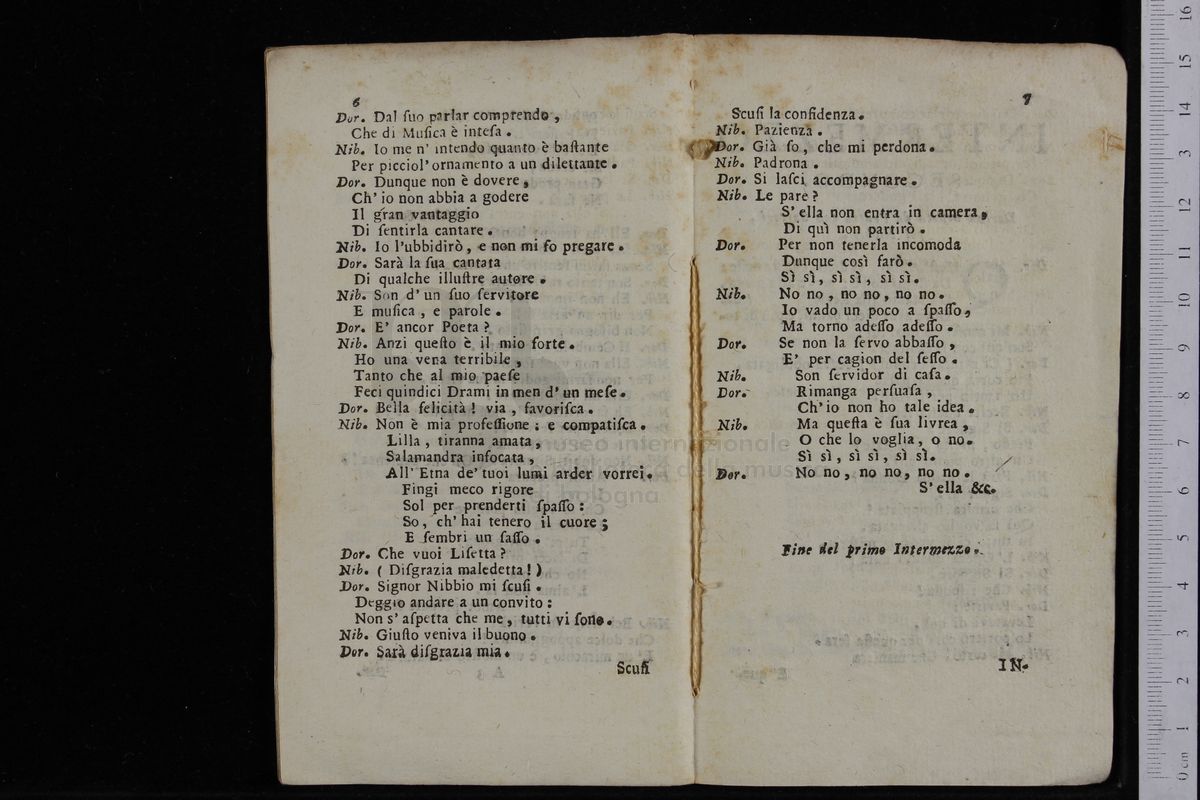 6
Dor. Dal ſuo parlar comprendo,
Che di Muſica è inteſa.
Nib. Io me n' intendo quanto è baſtante
Per picciol' ornamento a un dilettante.
Dor. Dunque non è dovere,
Ch' io non abbia a godere
Il gran vantaggio
Di ſentirla cantare.
Nib. Io l'ubbidirò, e non mi fo pregare.
Dor. Sarà la ſua cantata
Di qualche illuſtre autore.
Nib. Son d' un ſuo ſervitore
E muſica, e parole.
Dor. E' ancor Poeta?
Nib. Anzi queſto è il mio forte.
Ho una vena terribile,
Tanto che al mio paeſe
Feci quindici Drami in men d' un meſe.
Dor. Bella felicità! via, favoriſca.
Nib. Non è mia profeſſione; e compatiſca.
Lilla, tiranna amata,
Salamandra infocata,
All' Etna de' tuoi lumi arder vorrei.
Fingi meco rigore
Sol per prenderti ſpaſſo:
So, ch' hai tenero il cuore;
E ſembri un ſaſſo.
Dor. Che vuoi Liſetta?
Nib. (Diſgrazia maledetta!)
Dor. Signor Nibbio mi ſcuſi.
Deggio andare a un convito:
Non s' aſpetta che me, tutti vi ſono.
Nib. Giuſto veniva il buono.
Dor. Sarà diſgrazia mia.
Scuſi
7
Scuſi la confidenza.
Nib. Pazienza.
Dor. Già ſo, che mi perdona.
Nib. Padrona.
Dor. Si laſci accompagnare.
Nib. Le pare?
S' ella non entra in camera,
Di quì non partirò.
Dor. Per non tenerla incomoda
Dunque così farò.
Sì sì, sì sì, sì sì.
Nib. No no, no no, no no.
Io vado un poco a ſpaſſo,
Ma torno adeſſo adeſſo.
Dor. Se non la ſervo abbaſſo,
E' per cagion del ſeſſo.
Nib. Son ſervidor di caſa.
Dor. Rimanga perſuaſa,
Ch' io non ho tale idea.
Nib. Ma queſta è ſua livrea,
O che lo voglia, o no.
Sì sì, sì sì, sì sì.
Dor. No no, no no, no no.
S' ella &c.
Fine del primo Intermezzo.
IN-
museo internazionale
e biblioteca della musica
di bologna